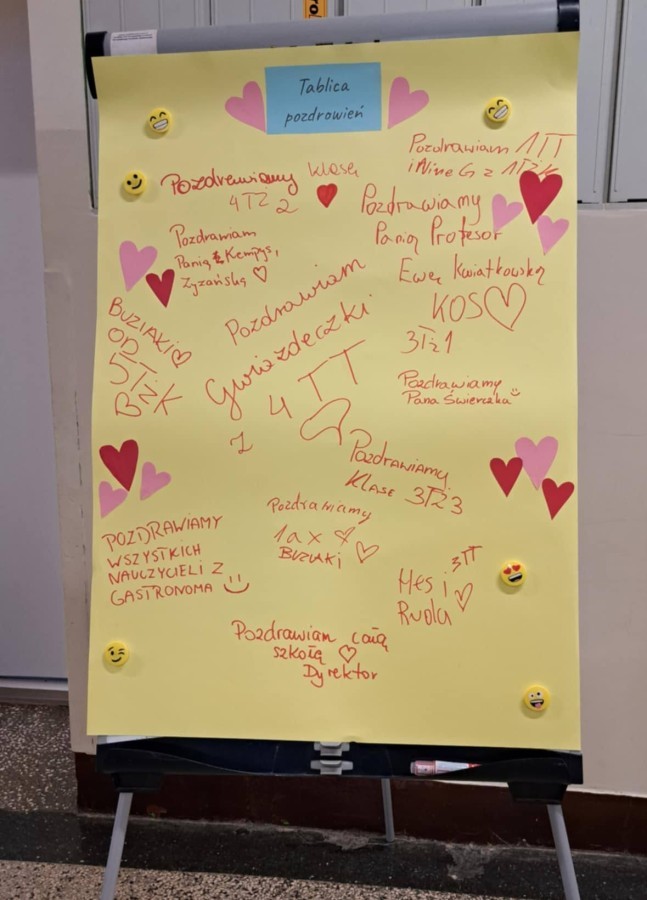 Tablica
pozdrowień
Pozdrawiam 1TT
Pozdrawiamy klasę
4TŻ 2
Pozdrawiamy
Panią Profesor
Ewę Kwiatkowską
KOS
3TŻ1
Pozdrawiam
Panią Kempys,
Zyzańską
Pozdrawiam
Gwiazdeczki
z 4 TT
BUZIAKI
OD
5TŻK
Pozdrawiamy
Pana Świerczka
Pozdrawiamy
Klase 3TŻ3
Pozdrawiamy
BUZIAKI
POZDRAWIAMY
WSZYSTKICH
NAUCZYCIELI Z
GASTRONOMA
3TT
i
Pozdrawiam całą
szkołą
Dyrektor